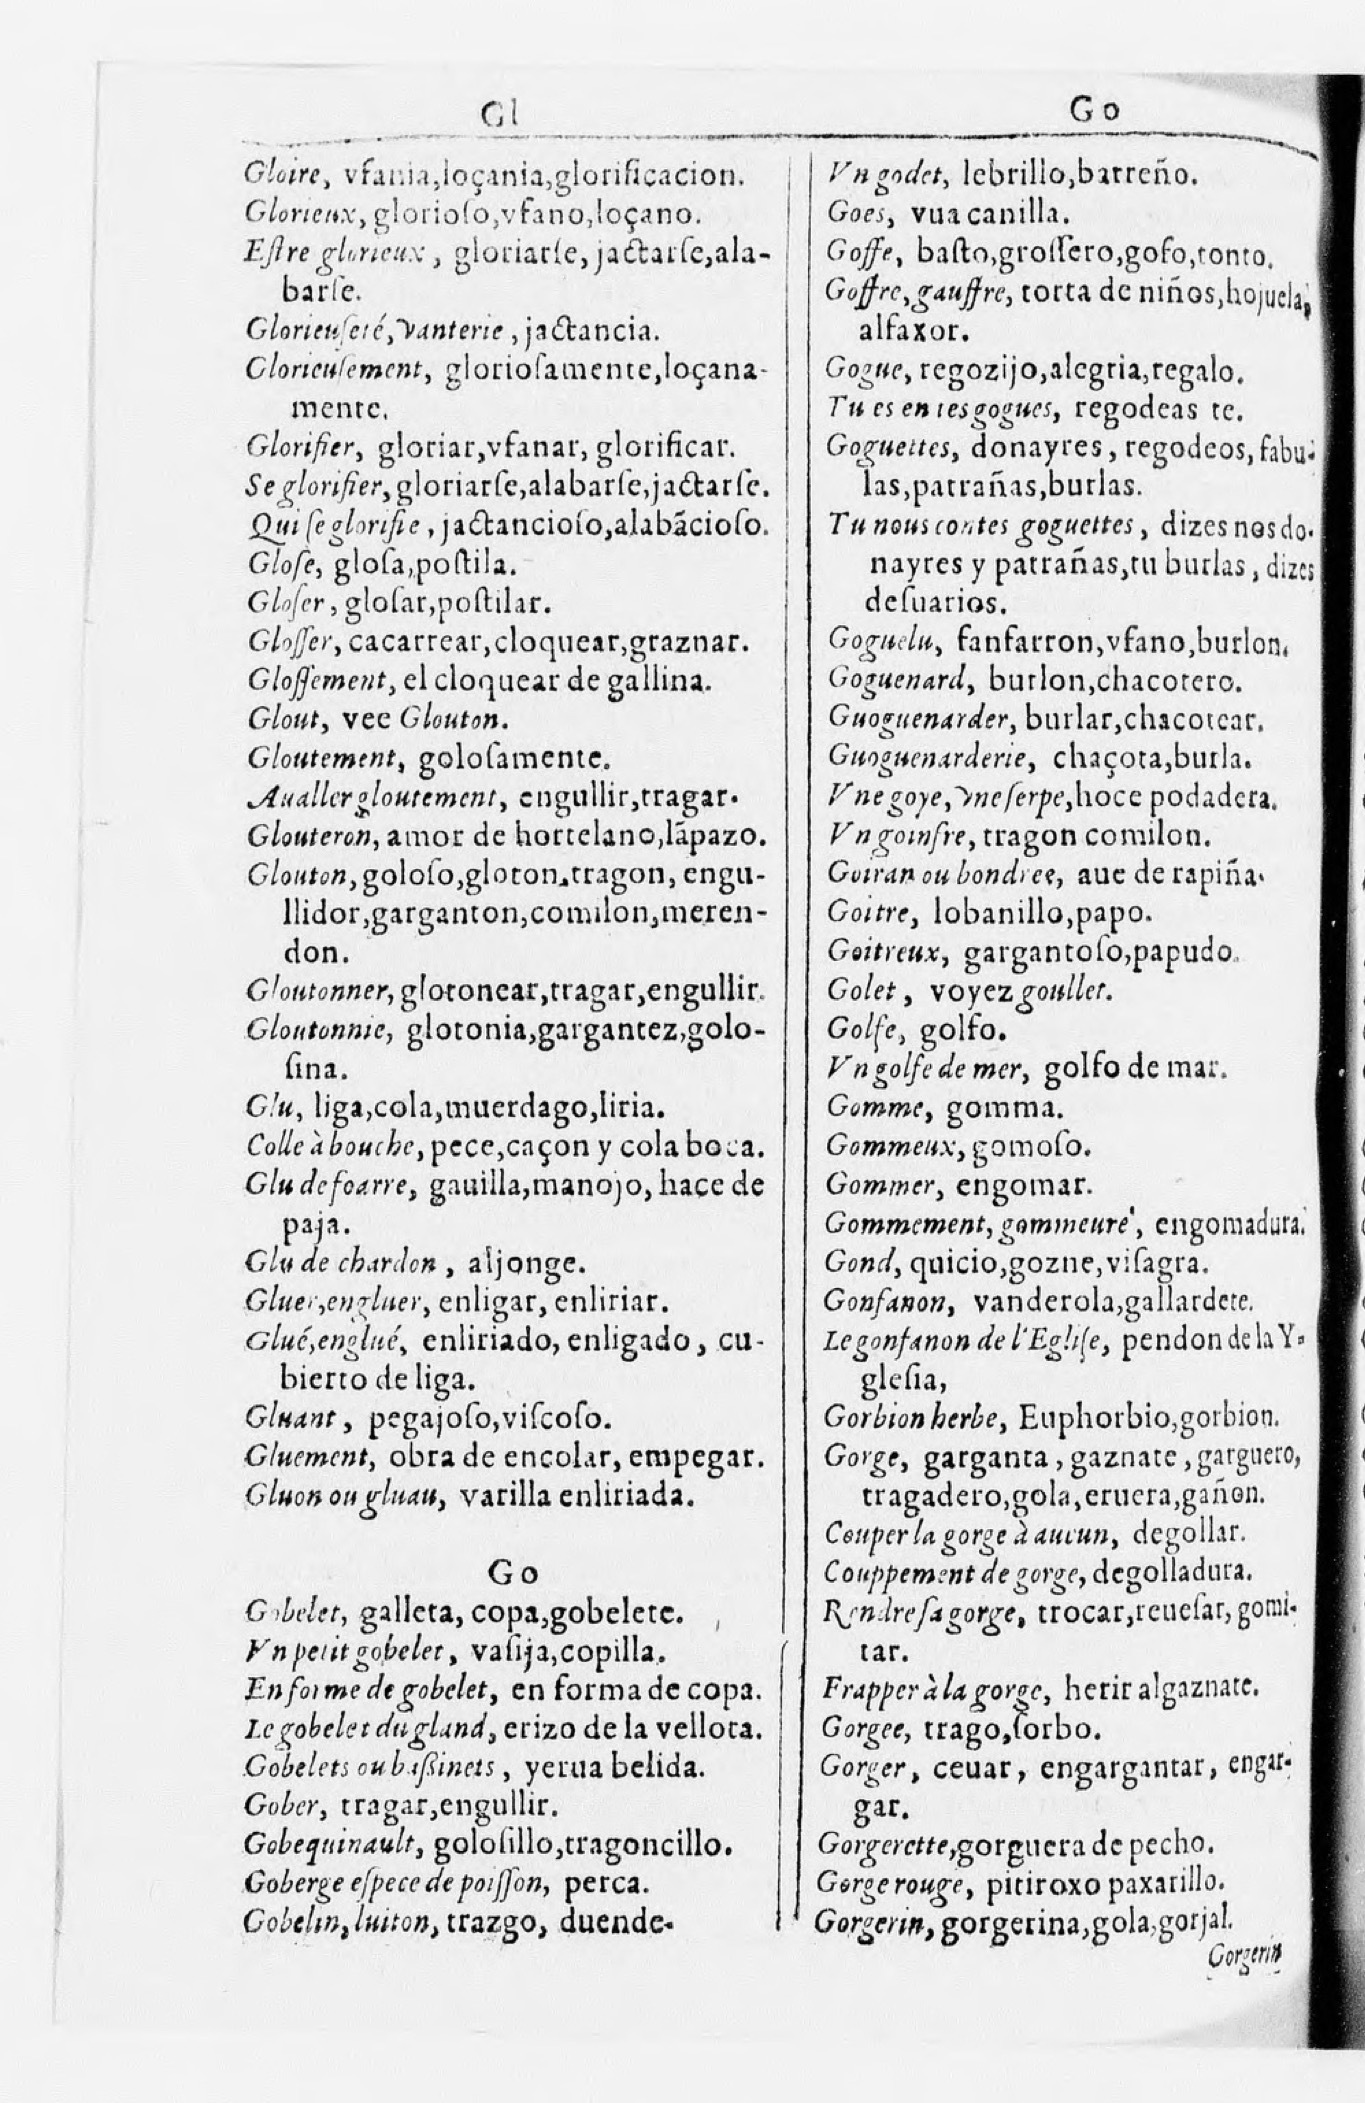 Gl
Gloire, vfania,loçania,glorificacion.
Glorieux, glorioſo,vfano,loçano.
Eſtre glorieux, gloriarſe, jactarſe,ala-
barſe.
Glorieuſeté, vanterie, jactancia.
Glorieuſement, glorioſamente,loçana-
mente.
Glorifier, gloriar,vfanar, glorificar.
Se glorifier, gloriarſe,alabarſe,jactarſe.
Qui ſe glorifie, jactancioſo,alabãcioſo.
Gloſe, gloſa,poſtila.
Gloſer, gloſar,poſtilar.
Gloſſer, cacarrear,cloquear,graznar.
Gloſſement, el cloquear de gallina.
Glout, vee Glouton.
Gloutement, goloſamente.
Aualler gloutement, engullir,tragar.
Glouteron, amor de hortelano,lãpazo.
Glouton, goloſo,gloton,tragon, engu-
llidor,garganton,comilon,meren-
don.
Gloutonner, glotonear,tragar,engullir.
Gloutonnie, glotonia,gargantez,golo-
ſina.
Glu, liga,cola,muerdago,liria.
Colle à bouche, pece,caçon y cola boca.
Glu de foarre, gauilla,manojo, hace de
paja.
Glu de chardon, aljonge.
Gluer,engluer, enligar, enliriar.
Glué,englué, enliriado, enligado, cu-
bierto de liga.
Gluant, pegajoſo,viſcoſo.
Gluement, obra de encolar, empegar.
Gluon ou gluau, varilla enliriada.
Go
Gobelet, galleta, copa,gobelete.
Vn petit gobelet, vaſija,copilla.
En forme de gobelet, en forma de copa.
Le gobelet du gland, erizo de la vellota.
Gobelets ou baſſinets, yerua belida.
Gober, tragar,engullir.
Gobequinault, goloſillo,tragoncillo.
Goberge eſpece de poiſſon, perca.
Gobelin, luiton, trazgo, duende.
Go
Vn godet, lebrillo,barreño.
Goes, vua canilla.
Goffe, baſto,groſſero,gofo,tonto.
Goffre, gauffre, torta de niños,hojuela,
alfaxor.
Gogue, regozijo,alegria,regalo.
Tu es en tes gogues, regodeas te.
Goguettes, donayres, regodeos, fabu-
las,patrañas,burlas.
Tu nous contes goguettes, dizes nos do-
nayres y patrañas,tu burlas, dizes
deſuarios.
Goguelu, fanfarron,vfano,burlon.
Goguenard, burlon,chacotero.
Guoguenarder, burlar,chacotear.
Guoguenarderie, chaçota,burla.
Vne goye, vne ſerpe,hoce podadera.
Vn goinfre, tragon comilon.
Goiran ou bondree, aue de rapiña.
Goitre, lobanillo,papo.
Goitreux, gargantoſo,papudo.
Golet, voyez goullet.
Golfe, golfo.
Vn golfe de mer, golfo de mar.
Gomme, gomma.
Gommeux, gomoſo.
Gommer, engomar.
Gommement, gommeure', engomadura.
Gond, quicio,gozne,viſagra.
Gonfanon, vanderola,gallardete.
Le gonfanon de l'Egliſe, pendon de la Y-
gleſia,
Gorbion herbe, Euphorbio,gorbion.
Gorge, garganta, gaznate, garguero,
tragadero,gola,eruera,gañon.
Couper la gorge à aucun, degollar.
Couppement de gorge, degolladura.
Rendre ſa gorge, trocar,reueſar, gomi-
tar.
Frapper à la gorge, herir al gaznate.
Gorgee, trago,ſorbo.
Gorger, ceuar, engargantar, engar-
gar.
Gorgerette,gorguera de pecho.
Gorge rouge, pitiroxo paxarillo.
Gorgerin, gorgerina,gola,gorjal.
Gorgerin